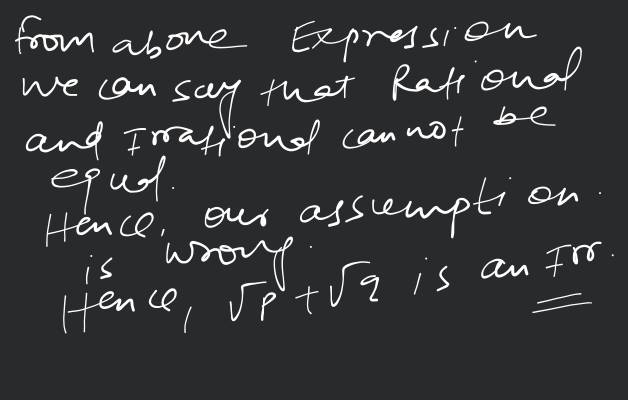 from above Expression
we can say that Rational
and Irrational cannot be
equal.
Hence, our assumption.
is wrong.
Hence, √p + √q is an Irr.